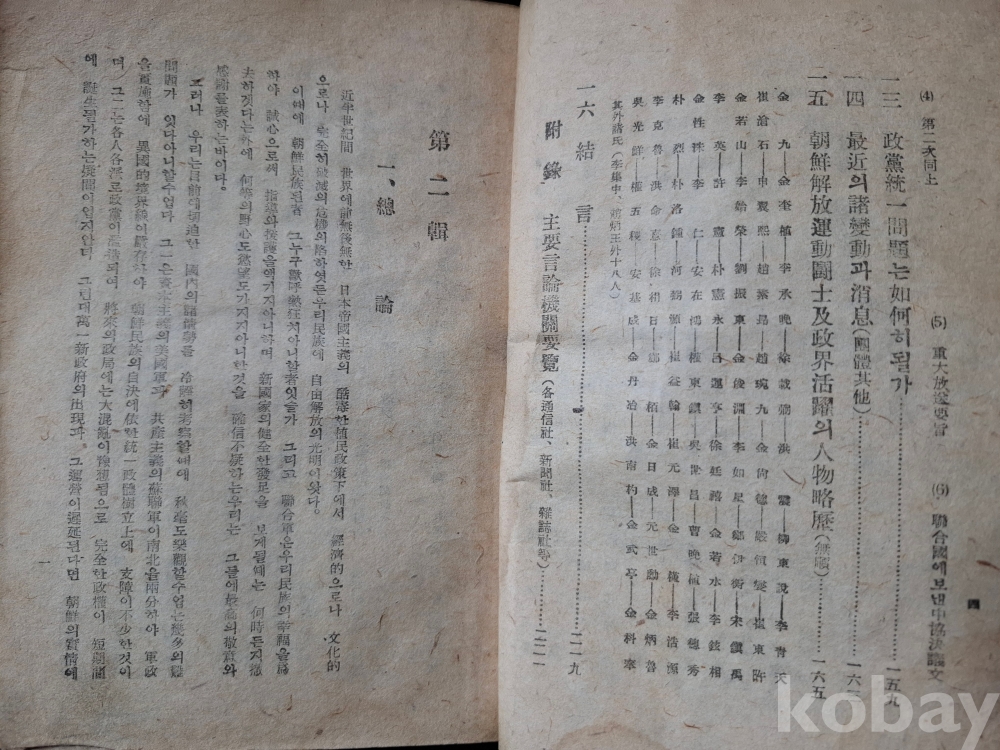 (4) 第二次同上 (5) 重大放送要旨 (6) 聯合國에보낸中協決議文
一三 政黨統一問題는如何히될가……一五九
一四 最近의諸變動과消息(團體其他)……一六三
一五 朝鮮解放運動鬪士及政界活躍의人物略歷(無順)……一六五
金九—金奎植—李承晩—徐載弼—洪震—柳東說—李靑天
崔滄石—申翼熙—趙素昻—趙琬九—金尙德—嚴恒燮—崔東旿
金若山—李始榮—劉振東—金俊淵—李如星—鄭伊衡—宋鎭禹
李英—許憲—朴憲永—呂運亨—徐廷禧—金若水—李鉉相
金性洙—李仁—安在鴻—權東鎭—吳世昌—曹晩植—張德秀
朴烈—朴洛鍾—河弼源—崔益翰—崔元澤—金—李浩源
李克魯—洪命憙—徐相日—鄭栢—金日成—元世勳—金炳魯
吳光鮮—權五稷—安基成—金丹冶—洪南杓—金武亭—金科奉
其外諸氏(李集中、趙炳玉外十八人)
一六 結言……二一九
附錄 主要言論機關要覽(各通信社、新聞社、雜誌社等)……二二一
四
第二輯
一、總論
近半世紀間 世界에前無後無한 日本帝國主義의 酷毒한植民政策下에서 經濟的으로나 文化的
으로나 完全히破滅의危機의路하엿든우리民族에 自由解放의光明이왓다。
이때에 朝鮮民族된者 그누구歡呼熱狂치아니할者잇슬가 그리고 聯合軍은우리民族의幸福을爲
하야 誠心으로써 指導와援護을액기지아니하며 新國家의健全한發足을 보게될때는 何時든지撤
去하겟다는外에 何等의野心도慾望도가지지아니한것을 確信不疑하는우리는 그들에最高의敬意와
感謝를表하는바이다。
그러나 우리는目前에切迫한 國內의諸情勢를 冷靜히考察할때에 秋毫도樂觀할수업는幾多의難
問題가 잇다아니할수업다 그一은資本主義의美國軍과 共産主義의蘇聯軍이南北을兩分하야 軍政
을實施함에 異國的의境界線이嚴存하야 朝鮮民族의自決에依한統一政體樹立上에 支障이不少한것이
며 그二는各人各派로政黨이濫造되여 將來의政局에는大混亂이豫想됨으로 完全한政權이 短期間
에 誕生될가하는疑問이업지안타 그런대萬一新政府의出現과 그運營이遲延된다면 朝鮮의實情에
kobay